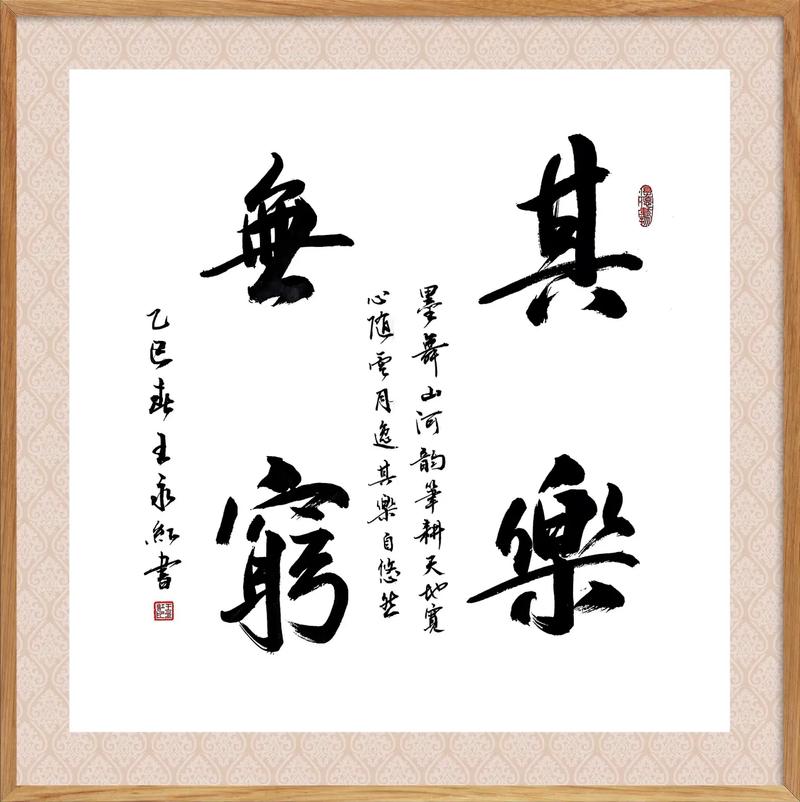 其樂
無窮
墨舞山河韵筆耕天地寬
心随雲月逸其樂自悠然
乙巳春王永紅書